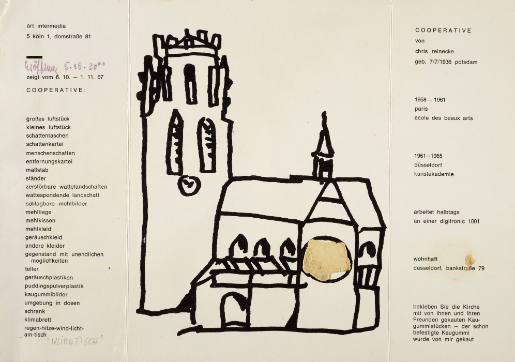 art intermedia
5 köln 1, domstraße 81
5.10. 20
zeigt vom 6. 10. – 1. 11. 67
COOPERATIVE:
großes luftstück
kleines luftstück
schattentaschen
schattenkartei
menschenschatten
entfernungskartei
maßstab
ständer
zerstörbare wattelandschaften
wattespendende landschaft
schlagbare mehlbilder
mehlliege
mehlkissen
mehlkleid
geräuschkleid
andere kleider
gegenstand mit unendlichen
möglichkeiten
teller
geräuschplastiken
puddingpulverplastik
kaugummibilder
umgebung in dosen
schrank
klimabrett
regen-hitze-wind-licht-
am-tisch
COOPERATIVE
von
chris reinecke
geb. 7/7/1936 potsdam
1958 – 1961
paris
école des beaux arts
1961 – 1965
düsseldorf
kunstakademie
arbeitet halbtags
an einer digitronic 1001
wohnhaft
düsseldorf, bankstraße 79
bekleben Sie die Kirche
mit von Ihnen und Ihren
Freunden gekauten Kau-
gummistücken – der schon
befestigte Kaugummi
wurde von mir gekaut